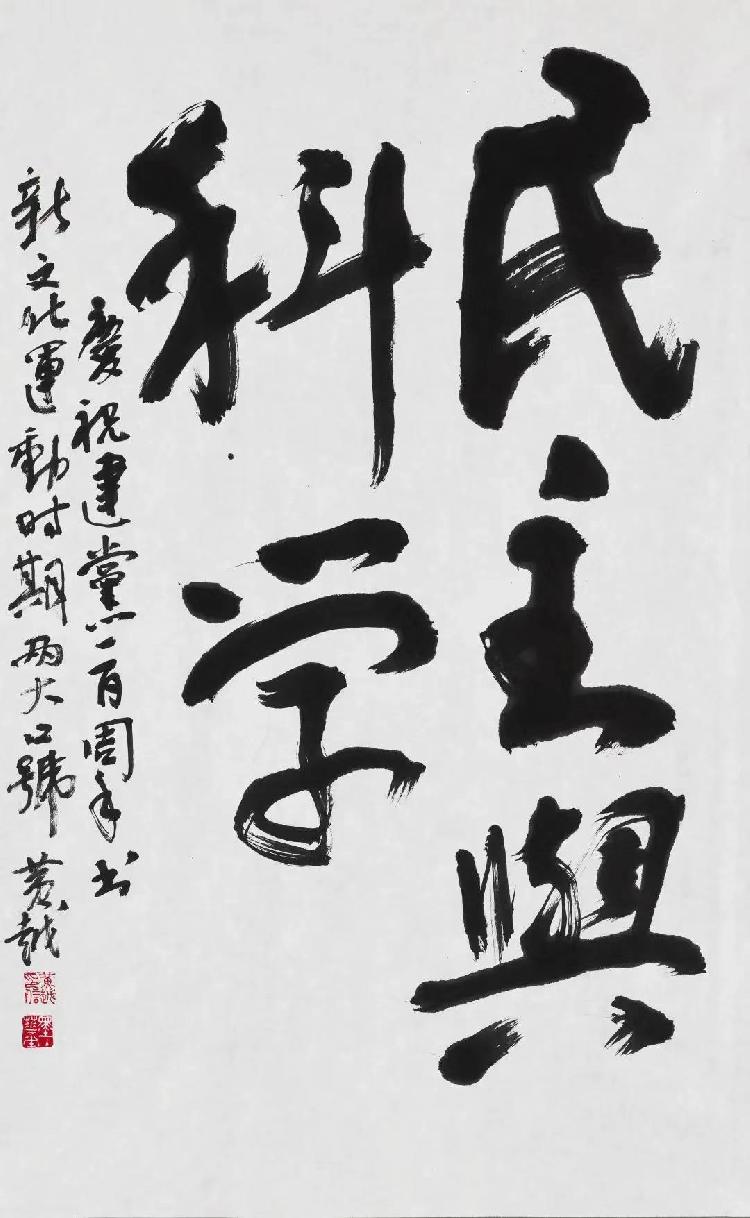 民主與
科学
慶祝建黨一百周年书
新文化運動时期两大口號 黄越